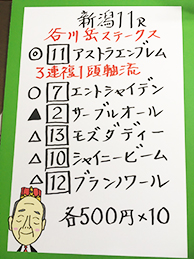 新潟11R
谷川岳ステークス
◎11アストラエンブレム
3連複1頭軸流
○7エントシャイデン
▲2サーブルオール
△13モズダディー
△10シャイニービーム
△12ブランノワール
各500円×10